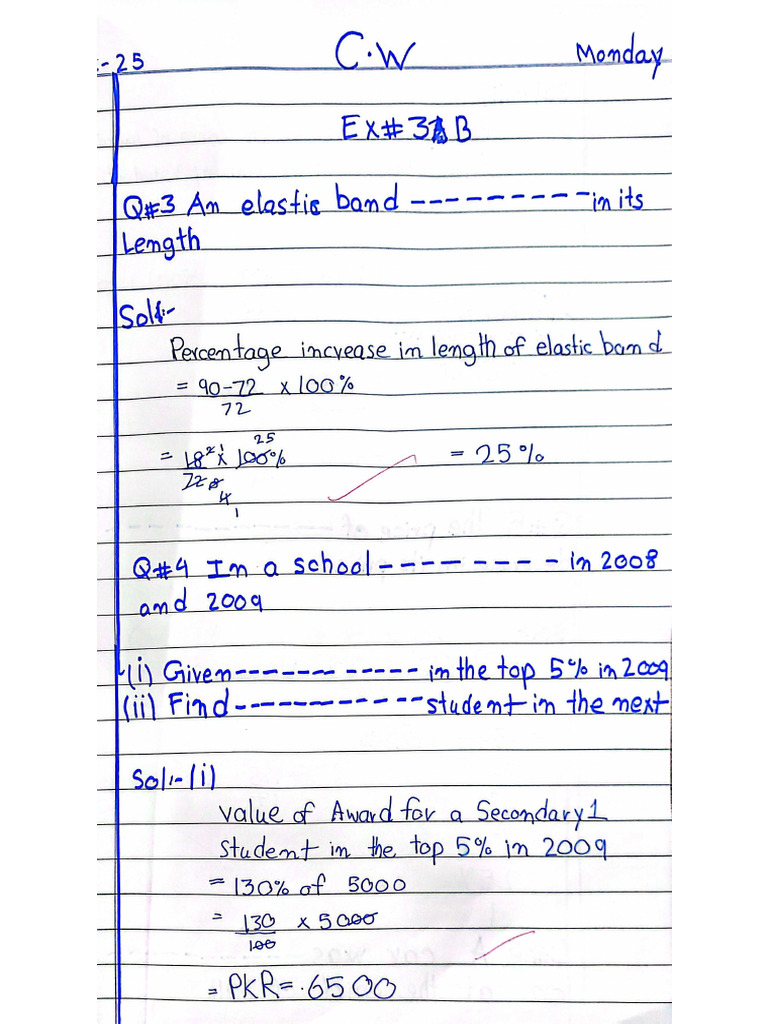 :-25 C.W Monday
Ex# 3B
Q#3 An elastic band ---------- in its
Length
Sol:-
Percentage increase in length of elastic band
= 90-72 x 100%
72
25
= 18 2 1 x 100% = 25%
72 8
4
1
Q#4 In a school -------- in 2008
and 2009
(i) Given------------ in the top 5% in 2009
(ii) Find------------student in the next
Sol:-(i)
Value of Award for a Secondary 1
student in the top 5% in 2009
= 130% of 5000
= 130 x 5000
100
= PKR=.6500